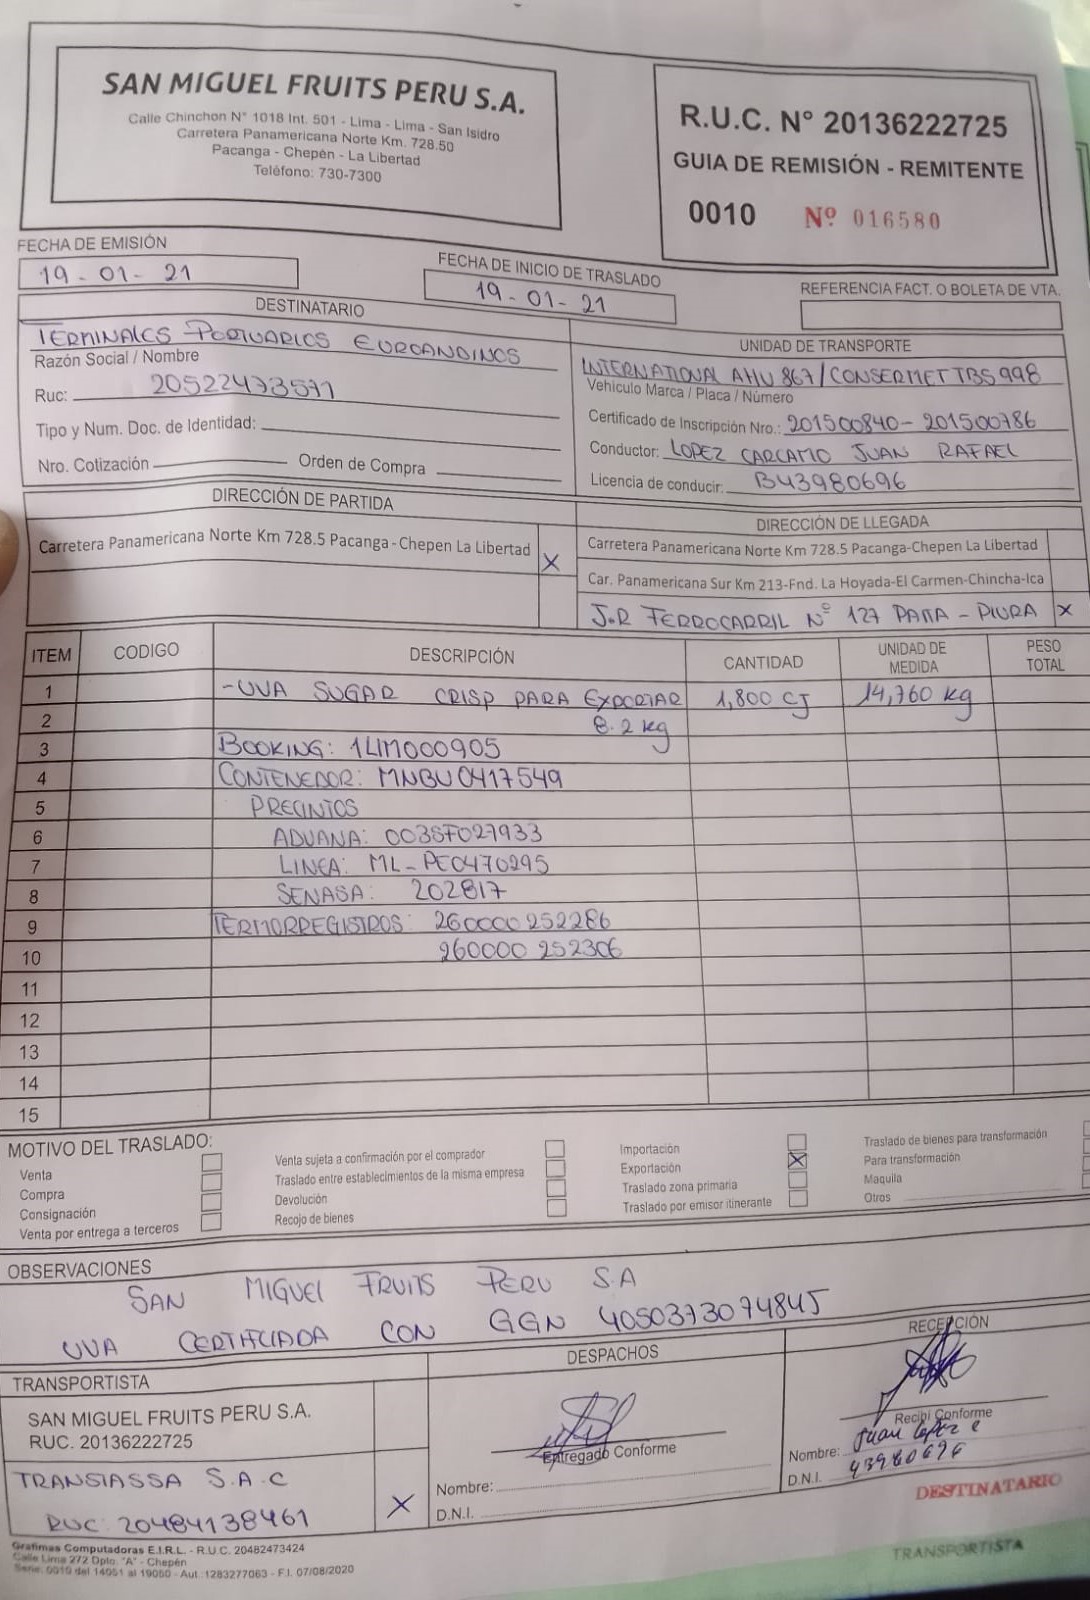 SAN MIGUEL FRUITS PERU S.A.
Calle Chinchon N° 1018 Int. 501 - Lima - Lima - San Isidro
Carretera Panamericana Norte Km. 728.50
Pacanga - Chepén - La Libertad
Teléfono: 730-7300
R.U.C. N° 20136222725
GUIA DE REMISIÓN - REMITENTE
0010 Nº 016580
FECHA DE EMISIÓN
19-01-21
FECHA DE INICIO DE TRASLADO
19-01-21
REFERENCIA FACT. O BOLETA DE VTA.
DESTINATARIO
TERMINALES PORTUARIOS EUROANDINOS
Razón Social / Nombre
Ruc: 20522473571
Tipo y Num. Doc. de Identidad:
Nro. Cotización Orden de Compra
UNIDAD DE TRANSPORTE
INTERNATIONAL AHU 867/CONSERMET TBS 998
Vehiculo Marca / Placa / Número
Certificado de Inscripción Nro.: 201500840-201500786
Conductor: LOPEZ CARCAMO JUAN RAFAEL
Licencia de conducir: B43980696
DIRECCIÓN DE PARTIDA
Carretera Panamericana Norte Km 728.5 Pacanga - Chepen La Libertad X
DIRECCIÓN DE LLEGADA
Carretera Panamericana Norte Km 728.5 Pacanga-Chepen La Libertad
Car. Panamericana Sur Km 213-Fnd. La Hoyada-El Carmen-Chincha-Ica
J.R FERROCARRIL Nº 127 PAITA - PIURA X
ITEM CODIGO DESCRIPCIÓN CANTIDAD UNIDAD DE MEDIDA PESO TOTAL
1 -UVA SUGAR CRISP PARA EXPORTAR 1,800 CJ 14,760 kg
2 8.2 kg
3 BOOKING: 1LIM000905
4 CONTENEDOR: MNBU0417549
5 PRECINTOS
6 ADUANA: 003SF027933
7 LINEA: ML-PE0470295
8 SENASA: 202817
9 TERMORREGISTROS: 260000252286
10 260000 252306
11
12
13
14
15
MOTIVO DEL TRASLADO:
Venta
Compra
Consignación
Venta por entrega a terceros
Venta sujeta a confirmación por el comprador
Traslado entre establecimientos de la misma empresa
Devolución
Recojo de bienes
Importación
Exportación X
Traslado zona primaria
Traslado por emisor itinerante
Traslado de bienes para transformación
Para transformación
Maquila
Otros
OBSERVACIONES
SAN MIGUEL FRUITS PERU S.A
UVA CERTIFICADA CON GGN 4050373074845
TRANSPORTISTA
SAN MIGUEL FRUITS PERU S.A.
RUC. 20136222725
TRANSIASSA S.A.C
RUC: 20484138461 X
DESPACHOS
Entregado Conforme
Nombre:
D.N.I.
RECEPCIÓN
Recibi Conforme
Nombre: Juan Lopez C
D.N.I. 43980696
DESTINATARIO
TRANSPORTISTA
Grafimas Computadoras E.I.R.L. - R.U.C. 20482473424
Calle Lima 272 Dpto. "A" - Chepén
Serie: 0010 del 14051 al 19050 - Aut.:1283277063 - F.I. 07/08/2020